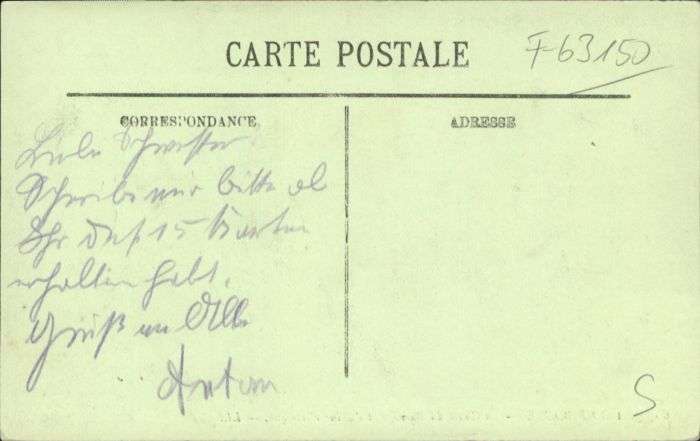 CARTE POSTALE
F-63150
CORRESPONDANCE
ADRESSE
Liebe Schwester!
Schreibe mir bitte ob
Ihr die 15 Karten
erhalten habt.
Gruß an Alle
Anton
S